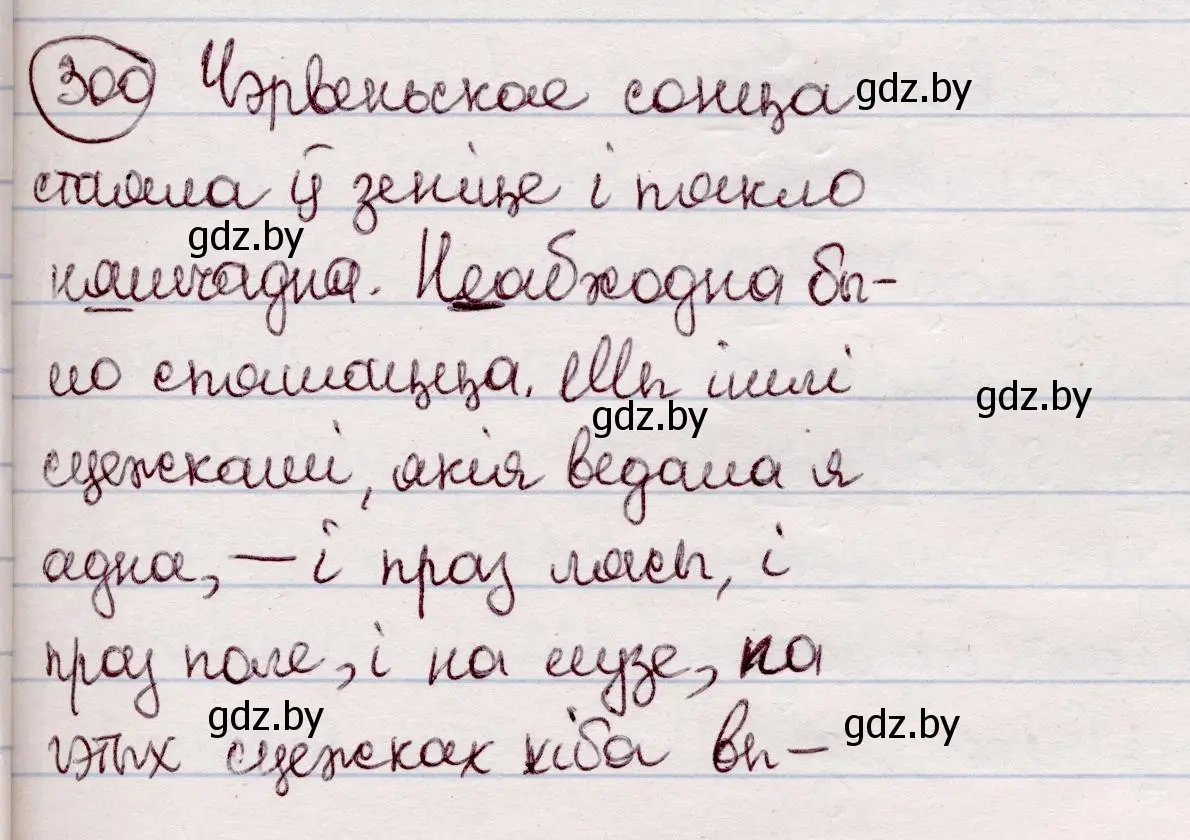 300 Чэрвеньскае сонца gdz.by
стаяла ў зеніце і пякло
gdz.by
няшчадна. Неабходна бы-
ло спяшацца. Мы ішлі
gdz.by gdz.by
сцежкамі, якія ведала я
адна, — і праз лясы, і
праз поле, і на лузе, па
gdz.by gdz.by
гэтых сцежках хіба вы-